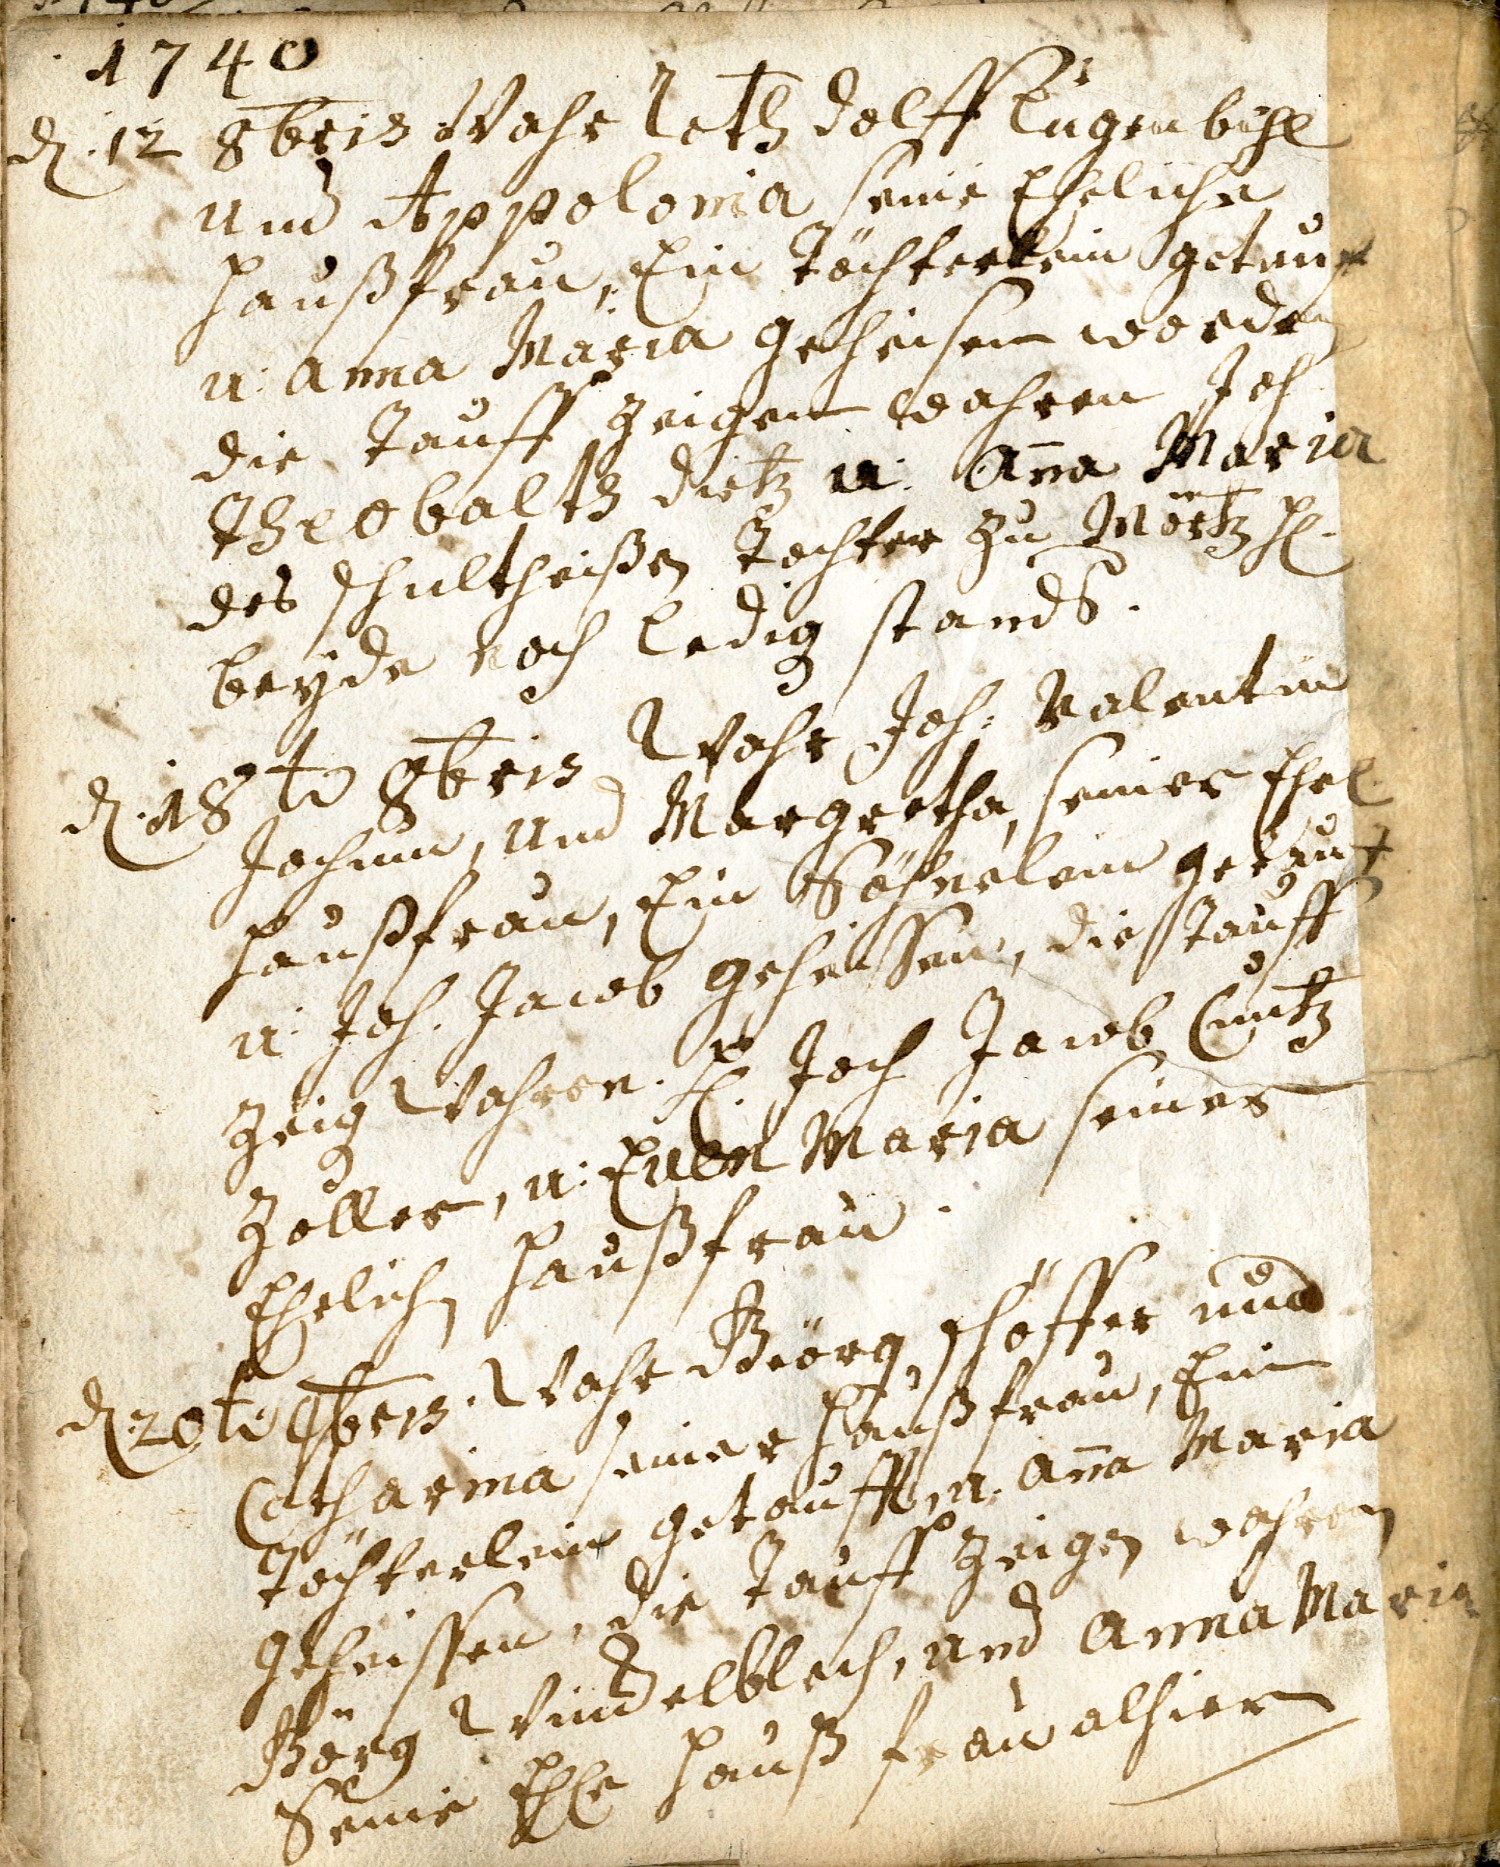 1740
d. 12 8bris Wahr Rothdolff Lügenbihl
und Appolonia seine Eheliche
haußfrau, Ein Töchterlein getauf
u: Anna Maria geheisen worden
die Tauff Zeigen wahren Joh
Theobaltz dietz u: Aña Maria
des schultheißen Tochter zu Mörtzh.
beyde noch ledig stands.
d. 18t 8bris Wahr Joh: Valentin
Jochum, und Margretha, seiner Ehel
haußfrau, Ein Söhnelein getauft
u: Joh. Jacob geheissen, die Tauff
Zeig Wahren. H. Joh Jacob Cuntz
Zoller, u: Even Maria seiner
Ehelich haußfrau.
d. 20t 9bris. Wahr Görg schöffer und
Catharina seiner haußfrau, Ein
Töchterlein getaufft, u. Aña Maria
geheissen, die Tauff Zeigen wahren
Görg Windelblech, und Anna Maria
Seine Ehe haußfrau alhier